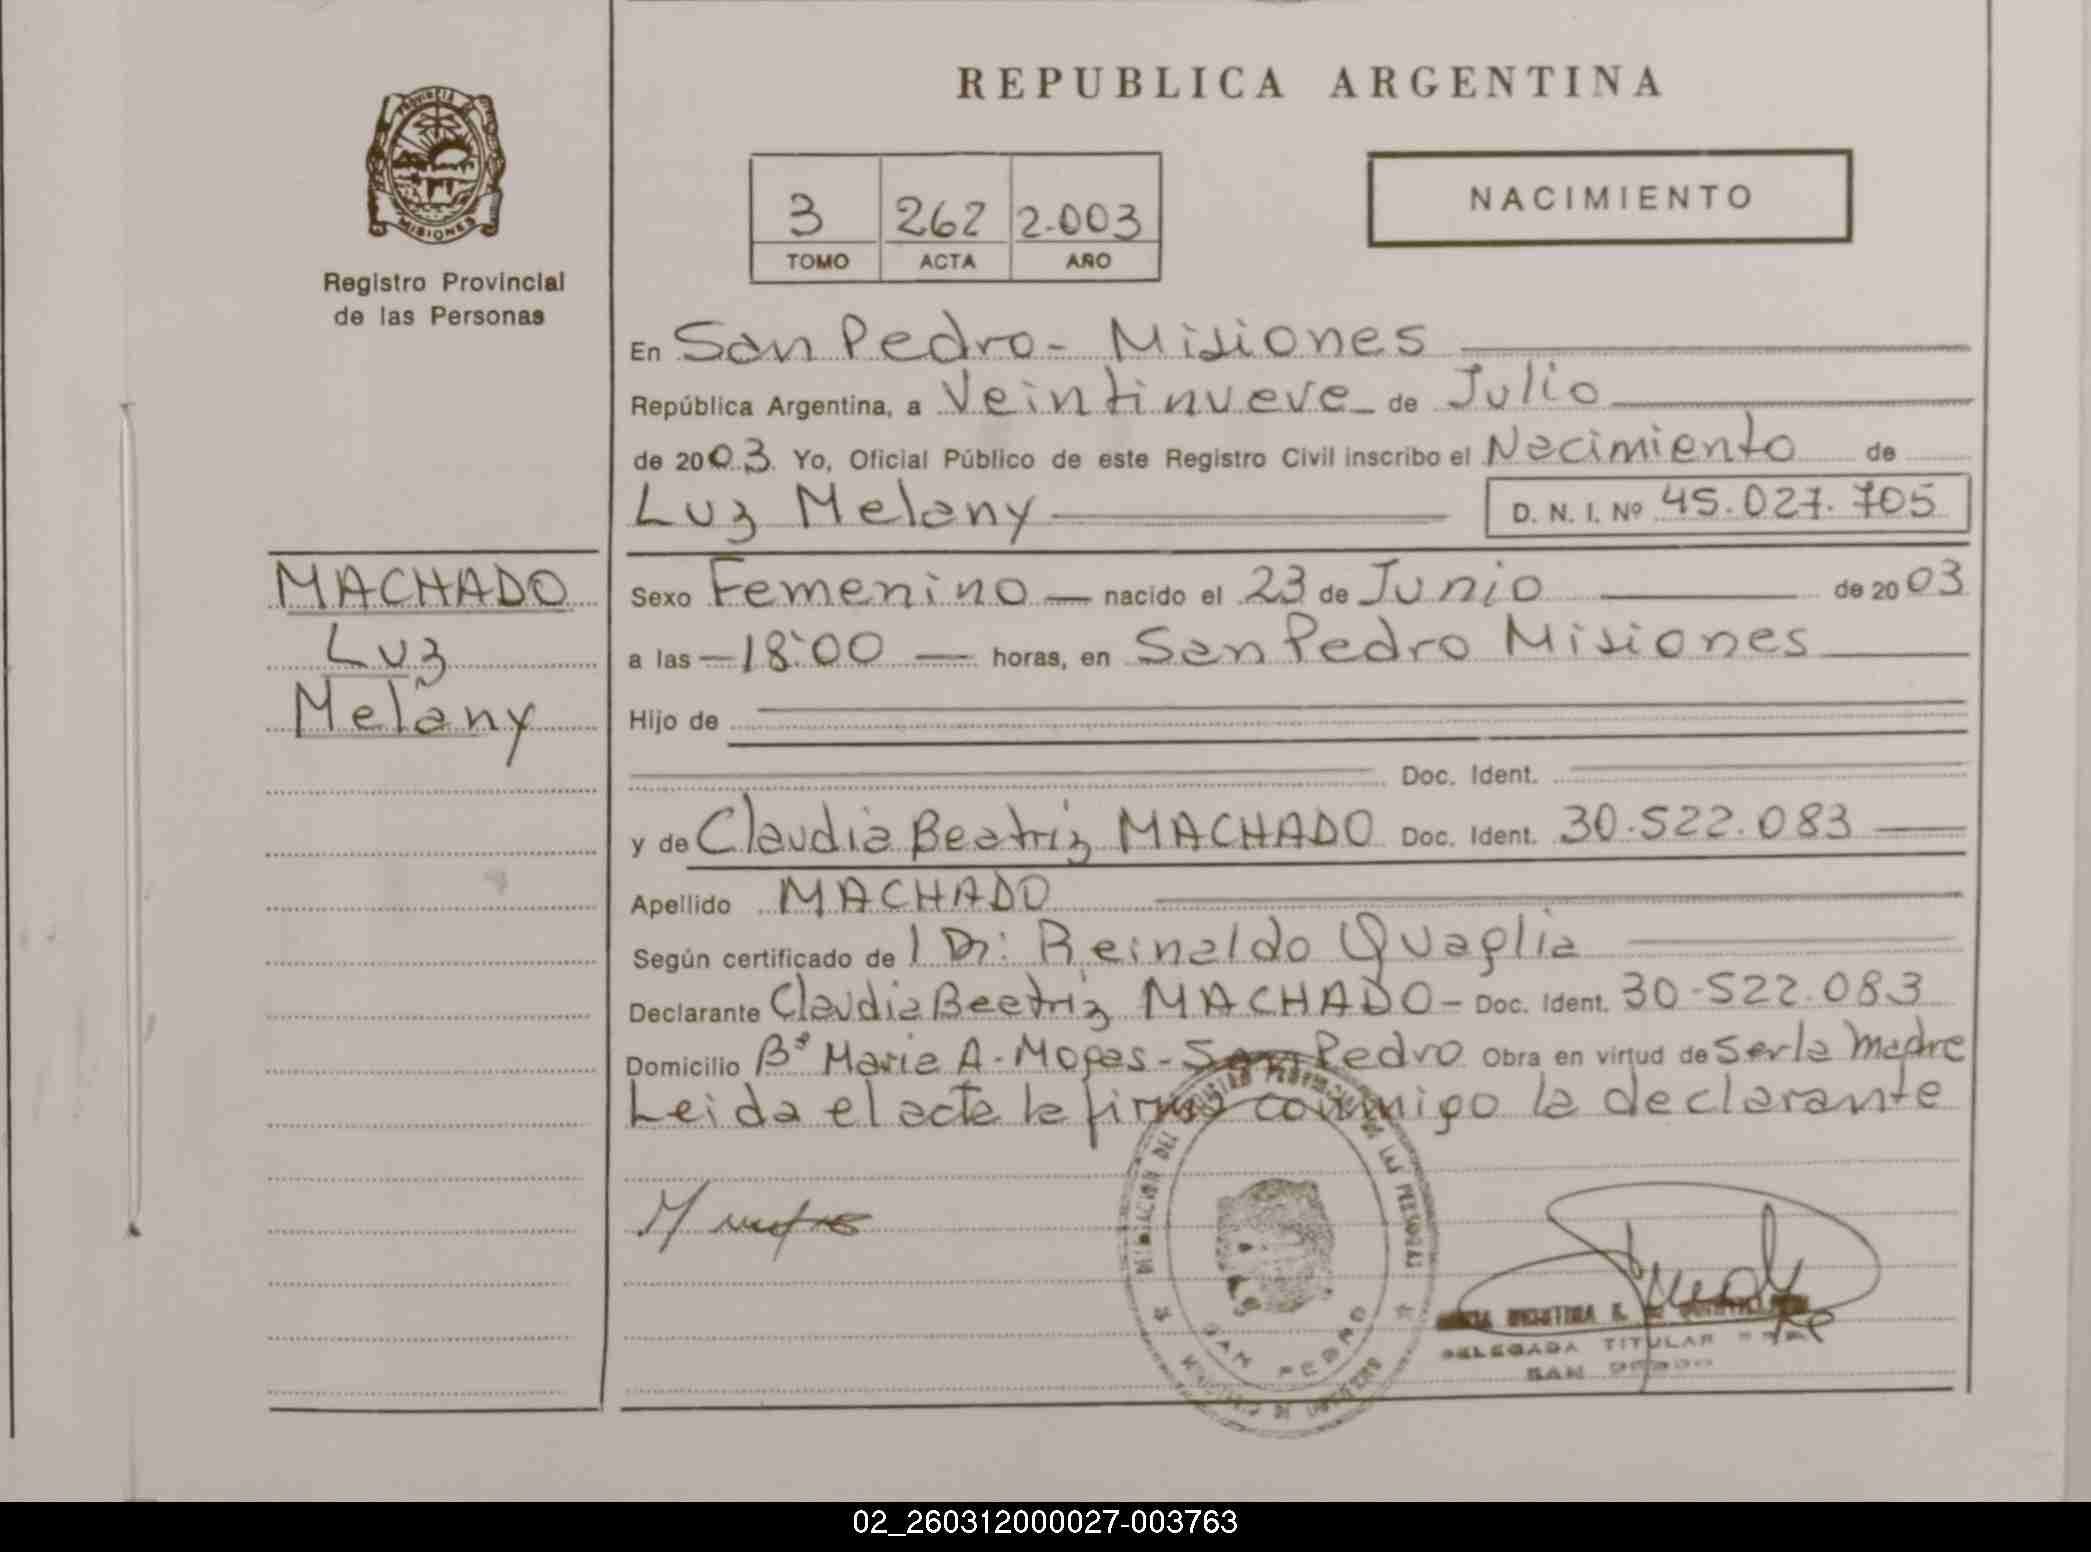 REPUBLICA ARGENTINA
PROVINCIA
MISIONES
Registro Provincial
de las Personas
3 262 2.003
TOMO ACTA AÑO
NACIMIENTO
En San Pedro - Misiones
República Argentina, a Veintinueve de Julio
de 2003. Yo, Oficial Público de este Registro Civil inscribo el Nacimiento de
Luz Melany D. N. I. Nº 45.027.705
MACHADO
Luz
Melany
Sexo Femenino — nacido el 23 de Junio de 2003
a las — 18:00 — horas, en San Pedro Misiones
Hijo de
Doc. Ident.
y de Claudia Beatriz MACHADO Doc. Ident. 30.522.083
Apellido MACHADO
Según certificado de l Dr: Reinaldo Quaglia
Declarante Claudia Beatriz MACHADO - Doc. Ident. 30.522.083
Domicilio Bº Maria A. - San Pedro Obra en virtud de Ser la Madre
Leida el acta la firma conmigo la declarante
DELEGACION DEL REGISTRO PROVINCIAL DE LAS PERSONAS
SAN PEDRO
DELEGADA TITULAR
SAN PEDRO
02_260312000027-003763